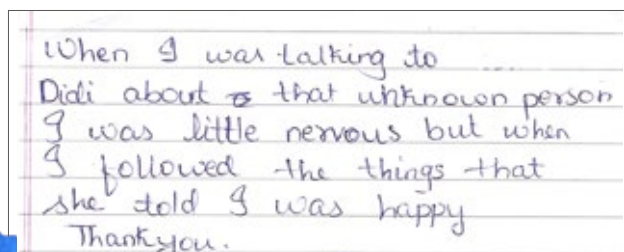 When I was talking to
Didi about that unknown person
I was little nervous but when
I followed the things that
she told I was happy
Thankyou.